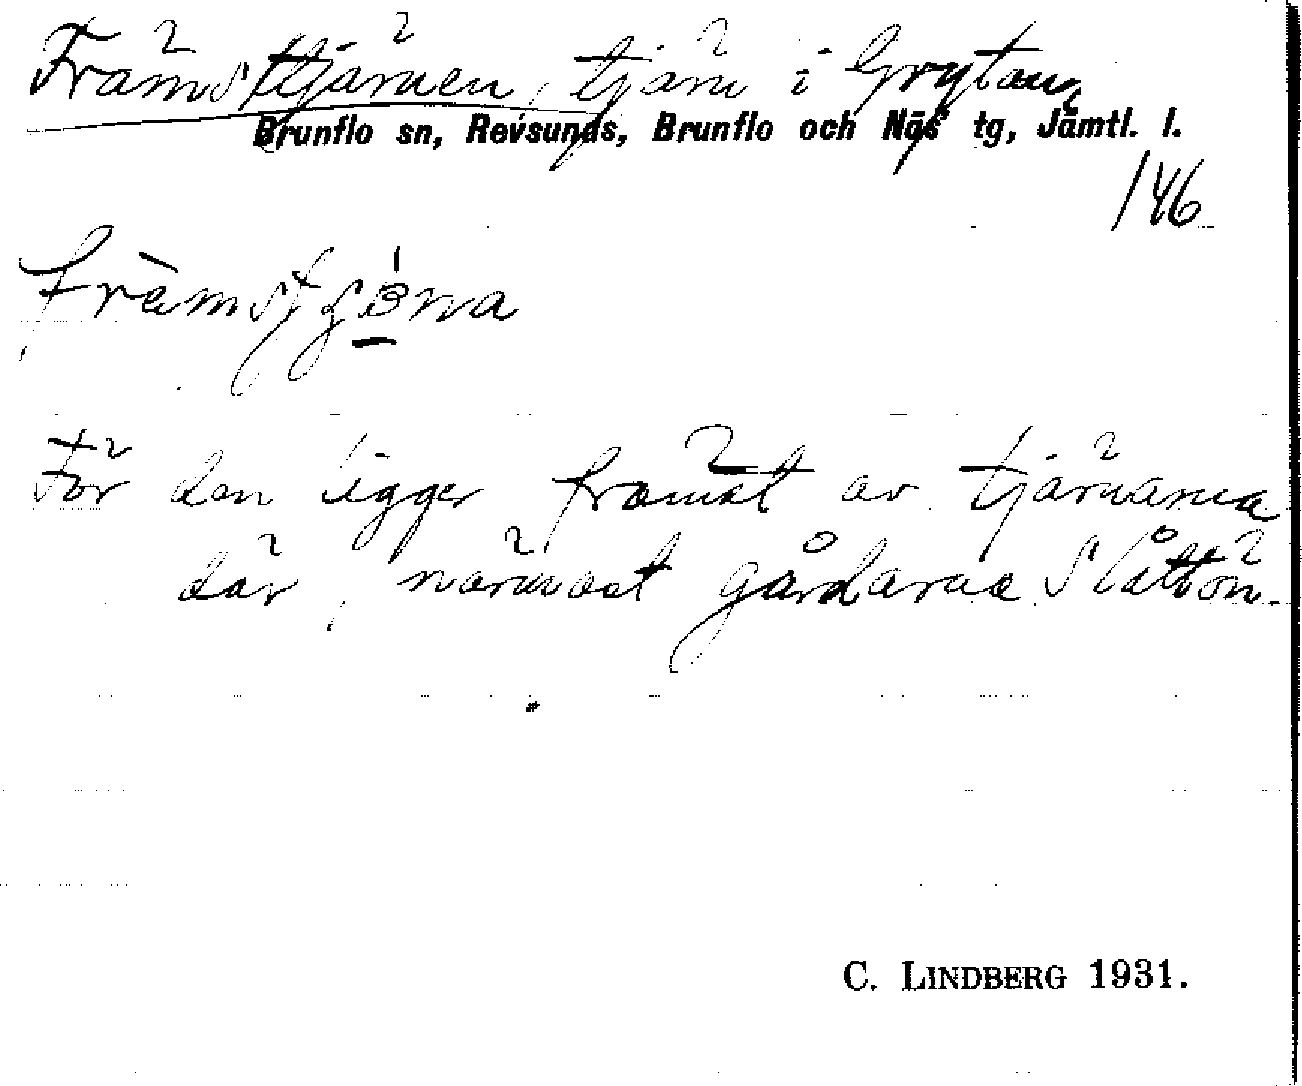 Främsttjärnen, tjärn i Grytan,
Brunflo sn, Revsunds, Brunflo och Näs tg, Jämtl. l.
146
För den ligger främst av tjärnarna
där, närmast gårdarna Slåttön.
C. LINDBERG 1931.